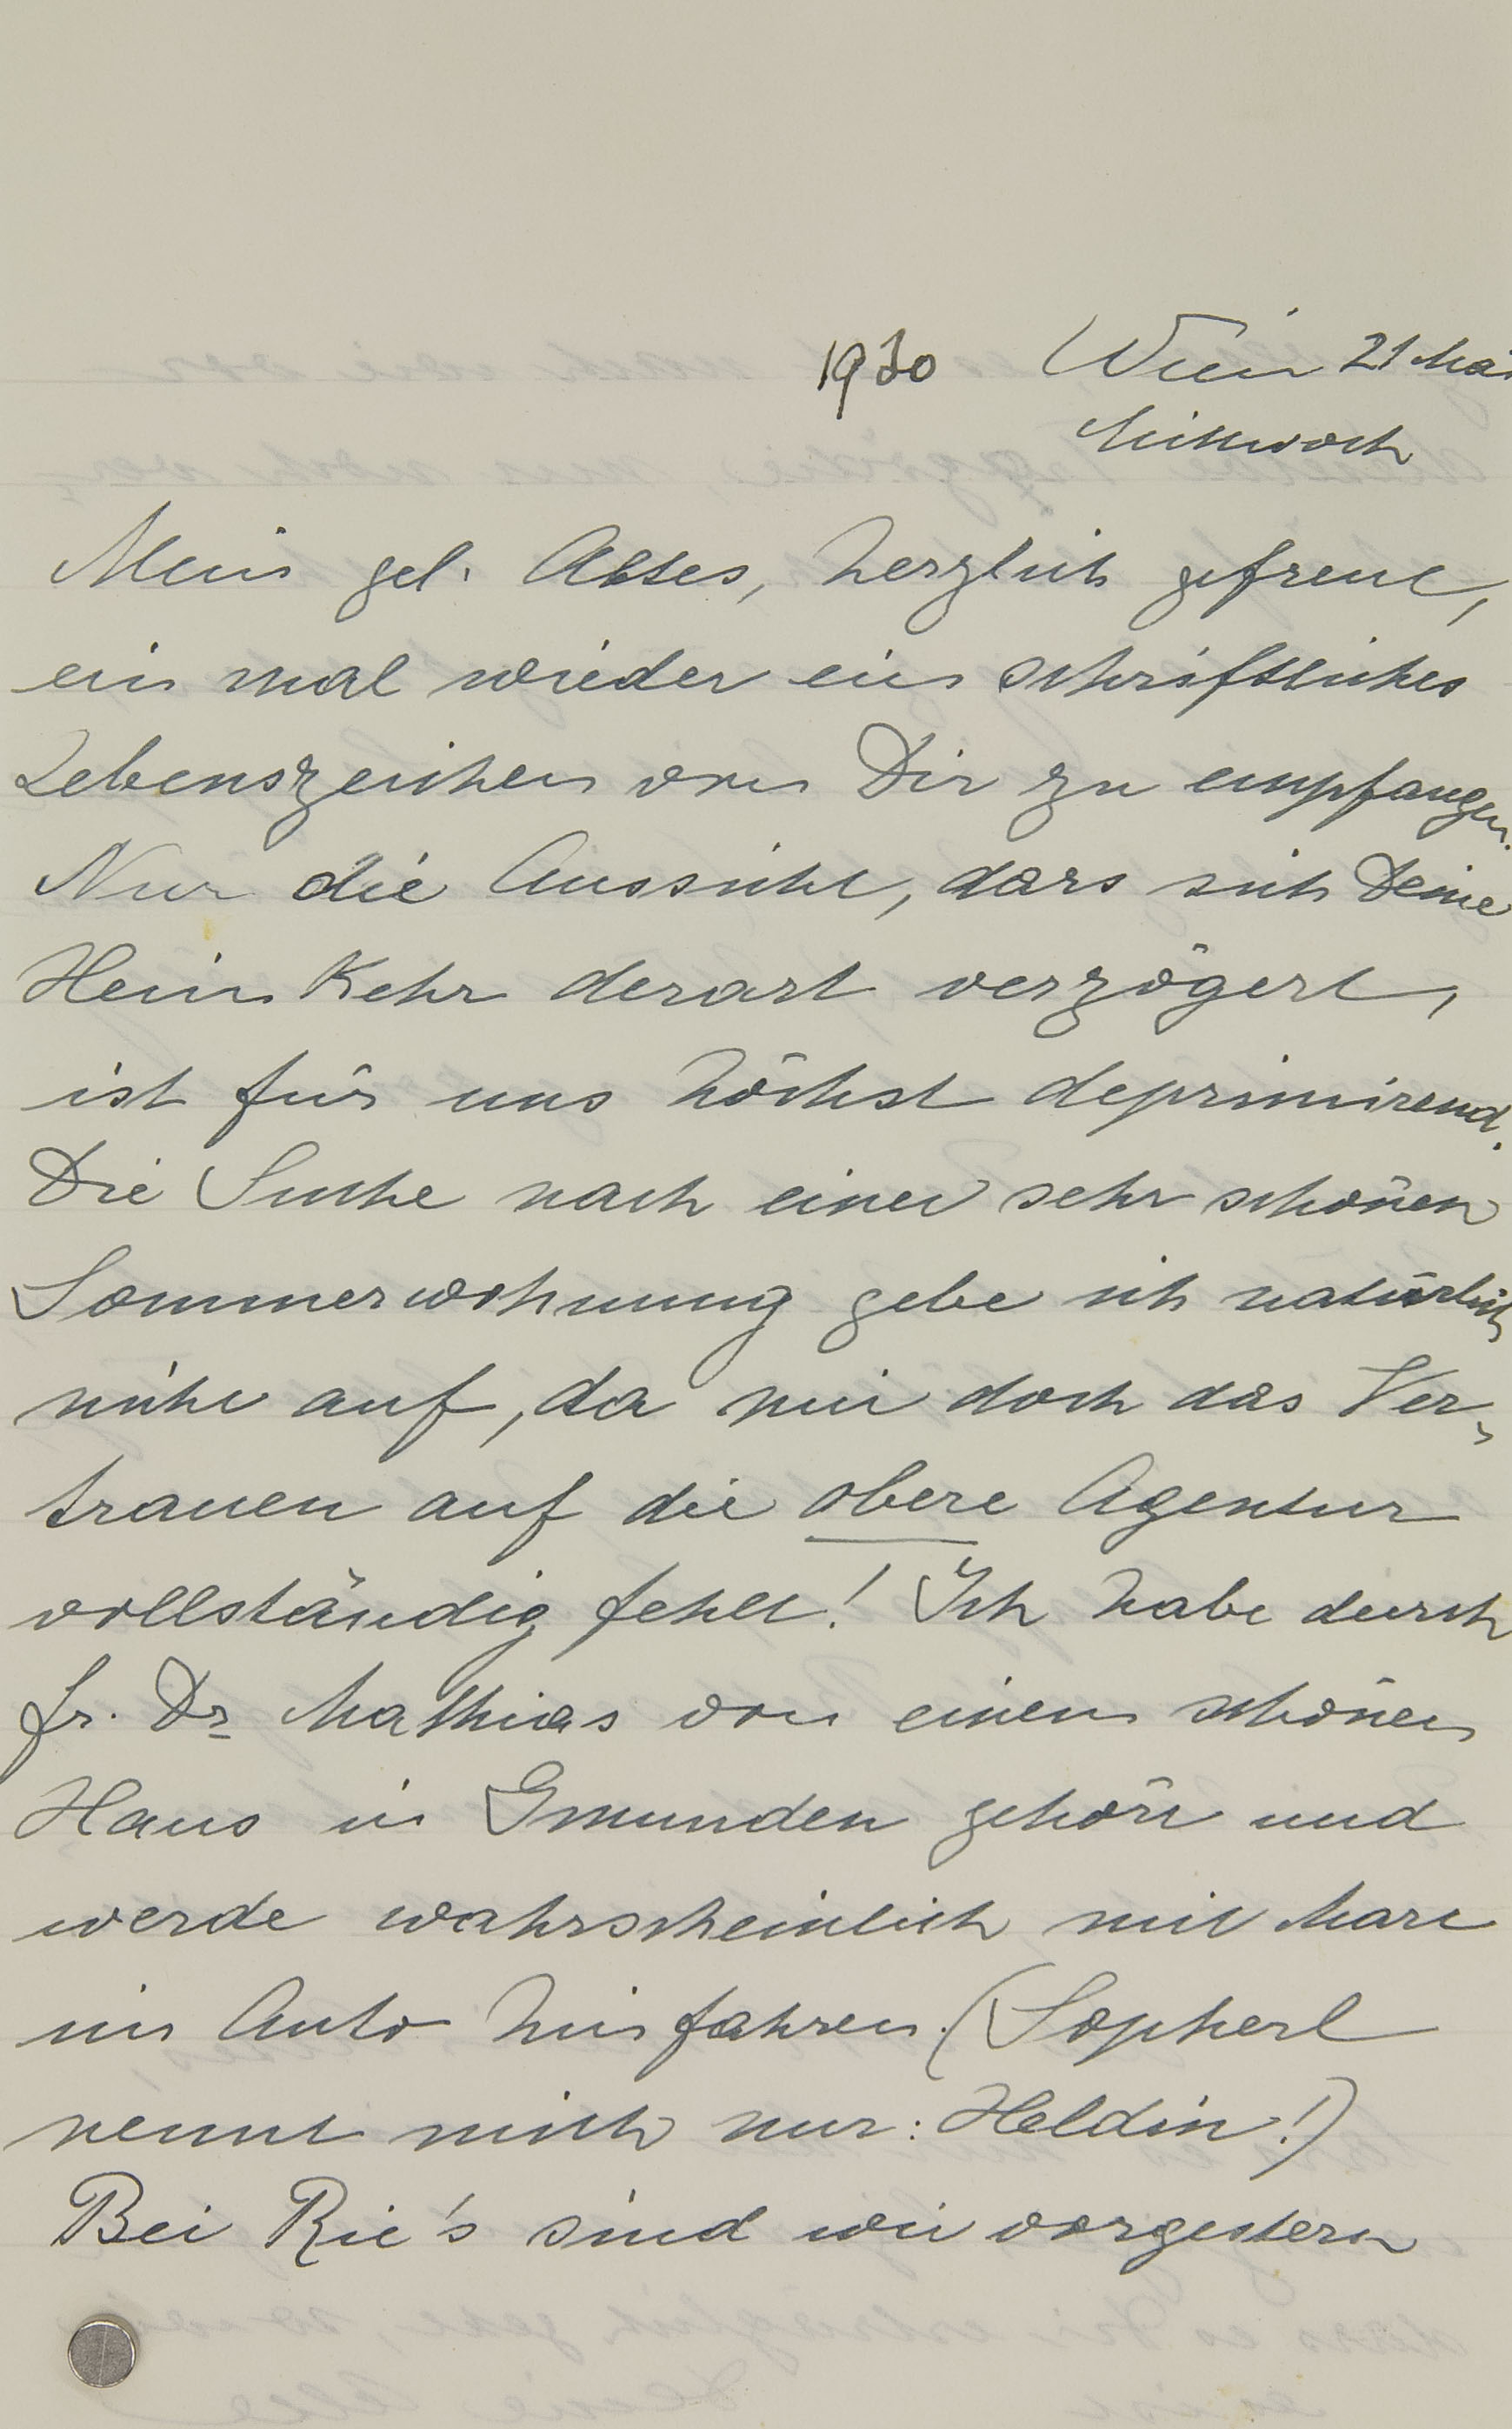 1930 Wien 21 Mai
Mittwoch
Mein gel. Altes, herzlich gefreut,
ein mal wieder ein schriftliches
Lebenszeichen von Dir zu empfangen.
Nur die Aussicht, dass sich Deine
Heim Kehr derart verzögert,
ist für uns höchst deprimirend.
Die Suche nach einer sehr schönen
Sommerwohnung gebe ich natürlich
nicht auf, da mir doch das Ver-
trauen auf die obere Agentur
vollständig fehlt! Ich habe durch
Fr. Dr Mathias von einem schönen
Haus in Gmunden gehört und
werde wahrscheinlich mit Marl
im Auto hinfahren. (Sopherl
nennt mich nur: Heldin!)
Bei Rie's sind wir vorgestern